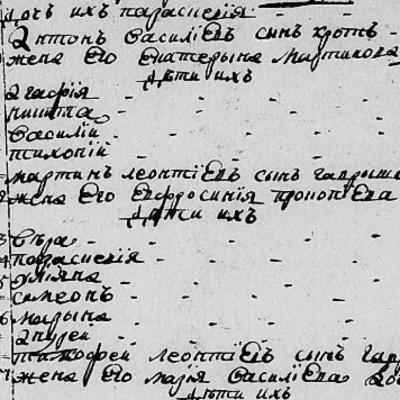 дочъ ихъ параскевiя
Антонъ василiевъ сынъ
жена Его Екатерына мартинова
дѣти ихъ
агафiя
никита
василiй
тихонiй
мартинъ леонтiевъ сынъ
жена Его Евфросинiя прокопiева
дѣти ихъ
вѣра
параскевiя
улiяна
симеонъ
марына
андрей
тимофей леонтiевъ сынъ
жена Его марiя василiева
дѣти ихъ